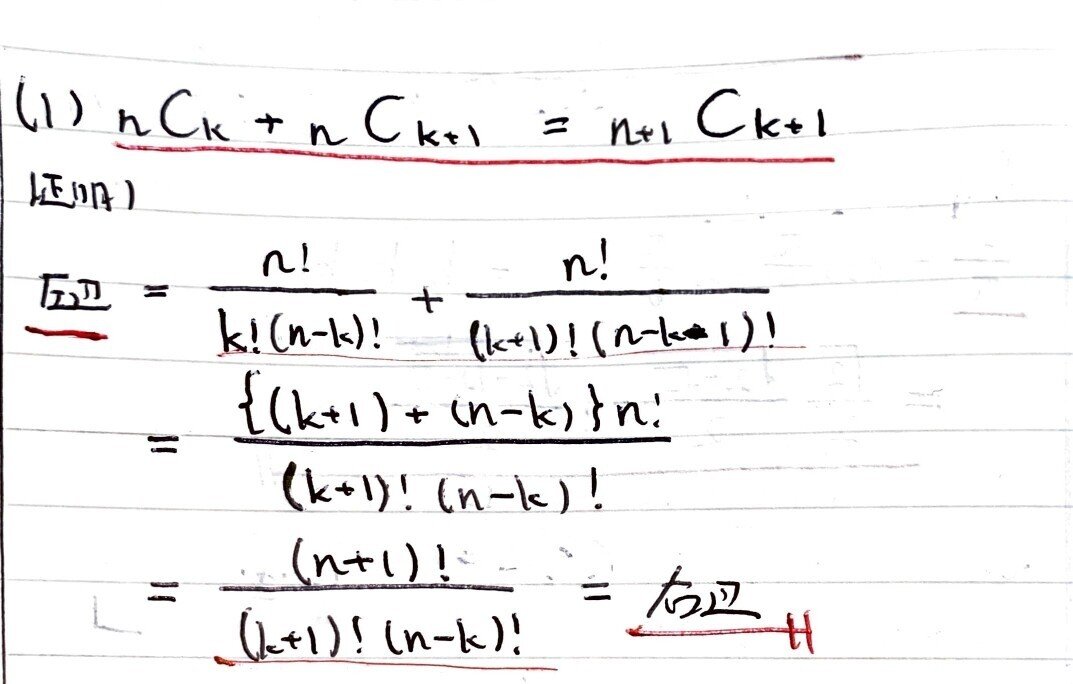 (1) nCk + nCk+1 = n+1Ck+1
証明)
左辺 = n!/k!(n-k)! + n!/(k+1)!(n-k-1)!
= {(k+1)+(n-k)}n!/(k+1)!(n-k)!
= (n+1)!/(k+1)!(n-k)! = 右辺